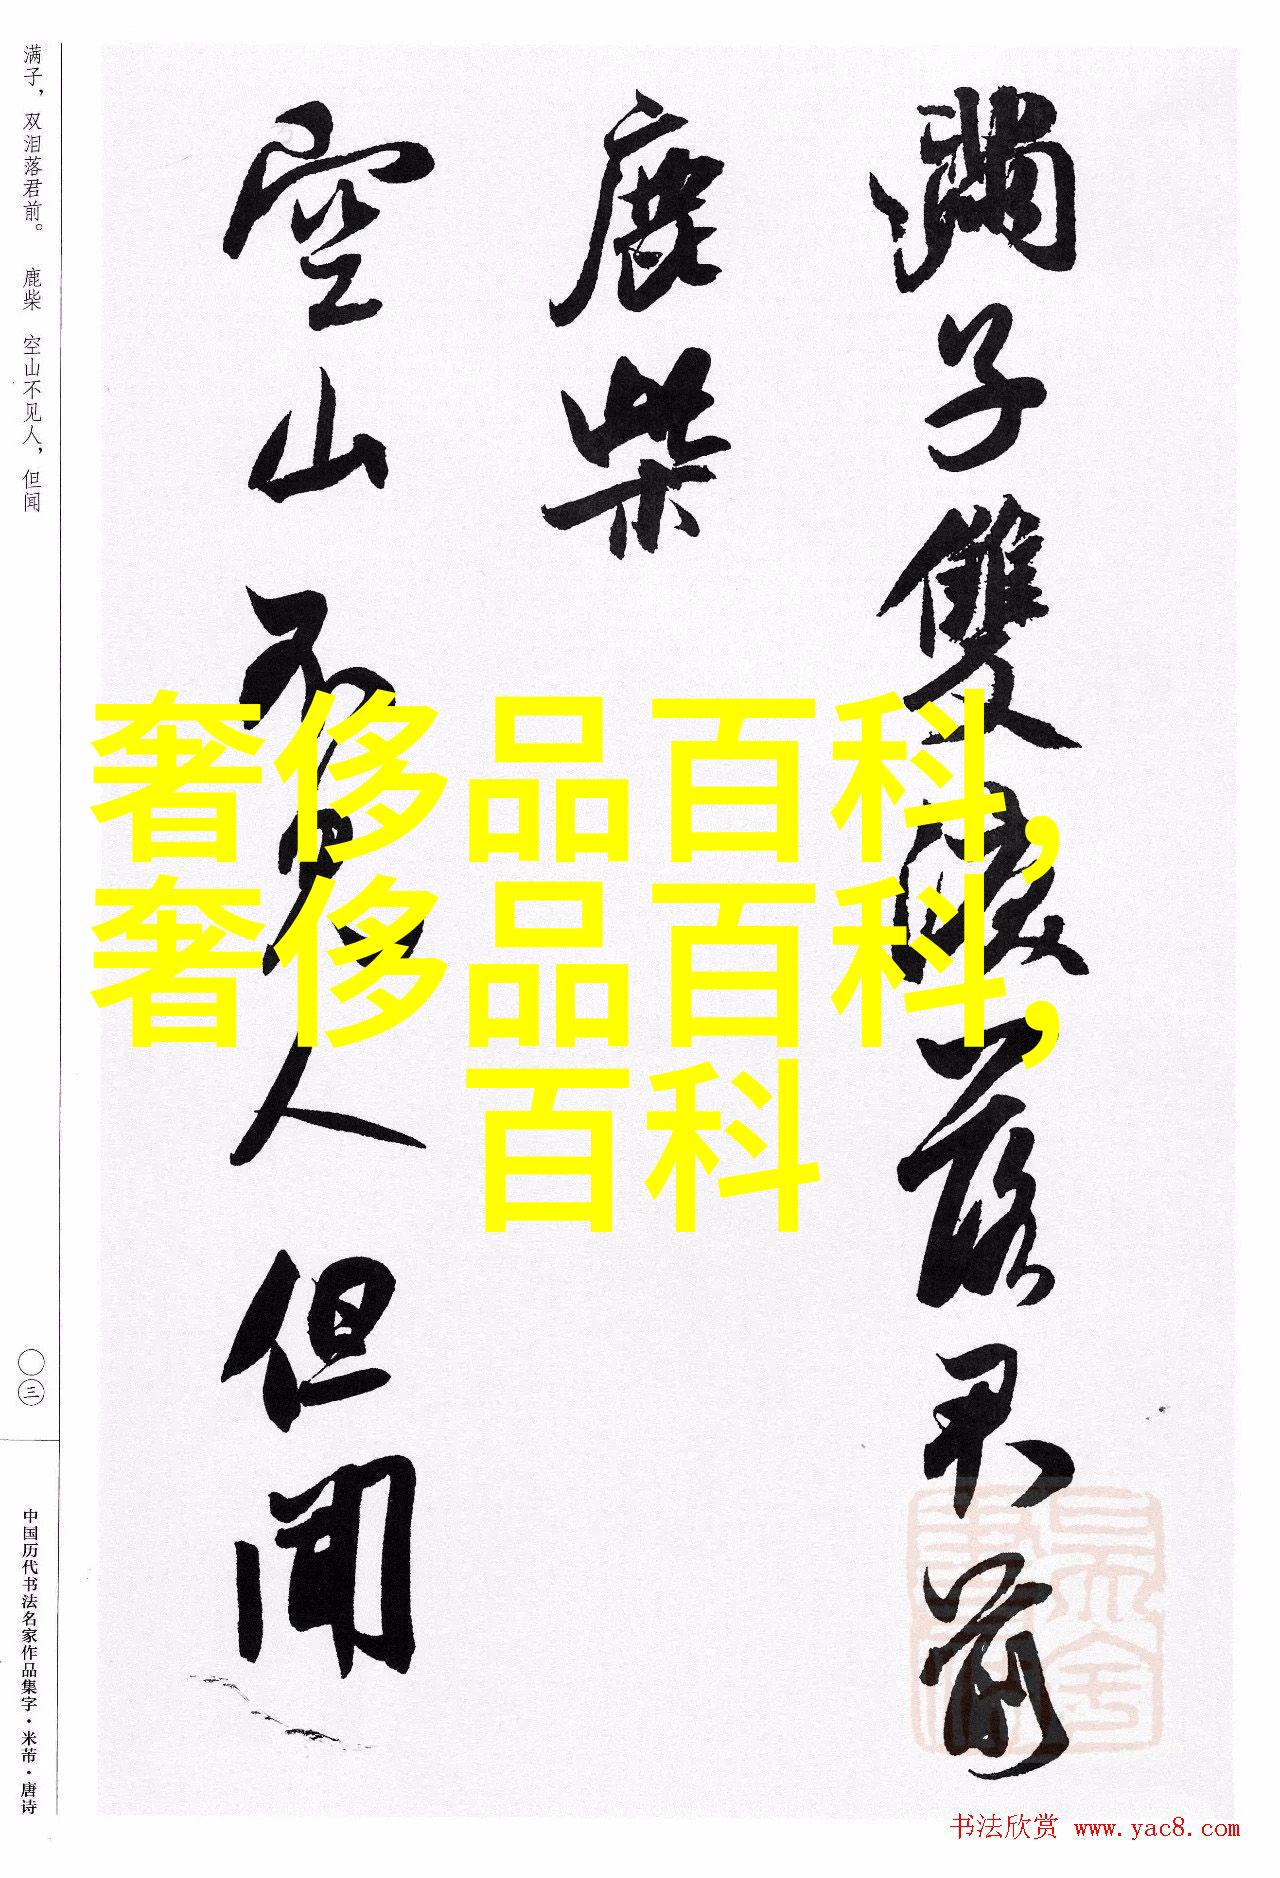 满子，双泪落君前。 鹿柴 空山不见人，但闻
滿子雙淚落君前
鹿柴
空山不見人但聞
奢侈品百科,
奢侈品百科,
百科
〇三
中国历代书法名家作品集字·米芾·唐诗
书法欣赏 www.yac8.com